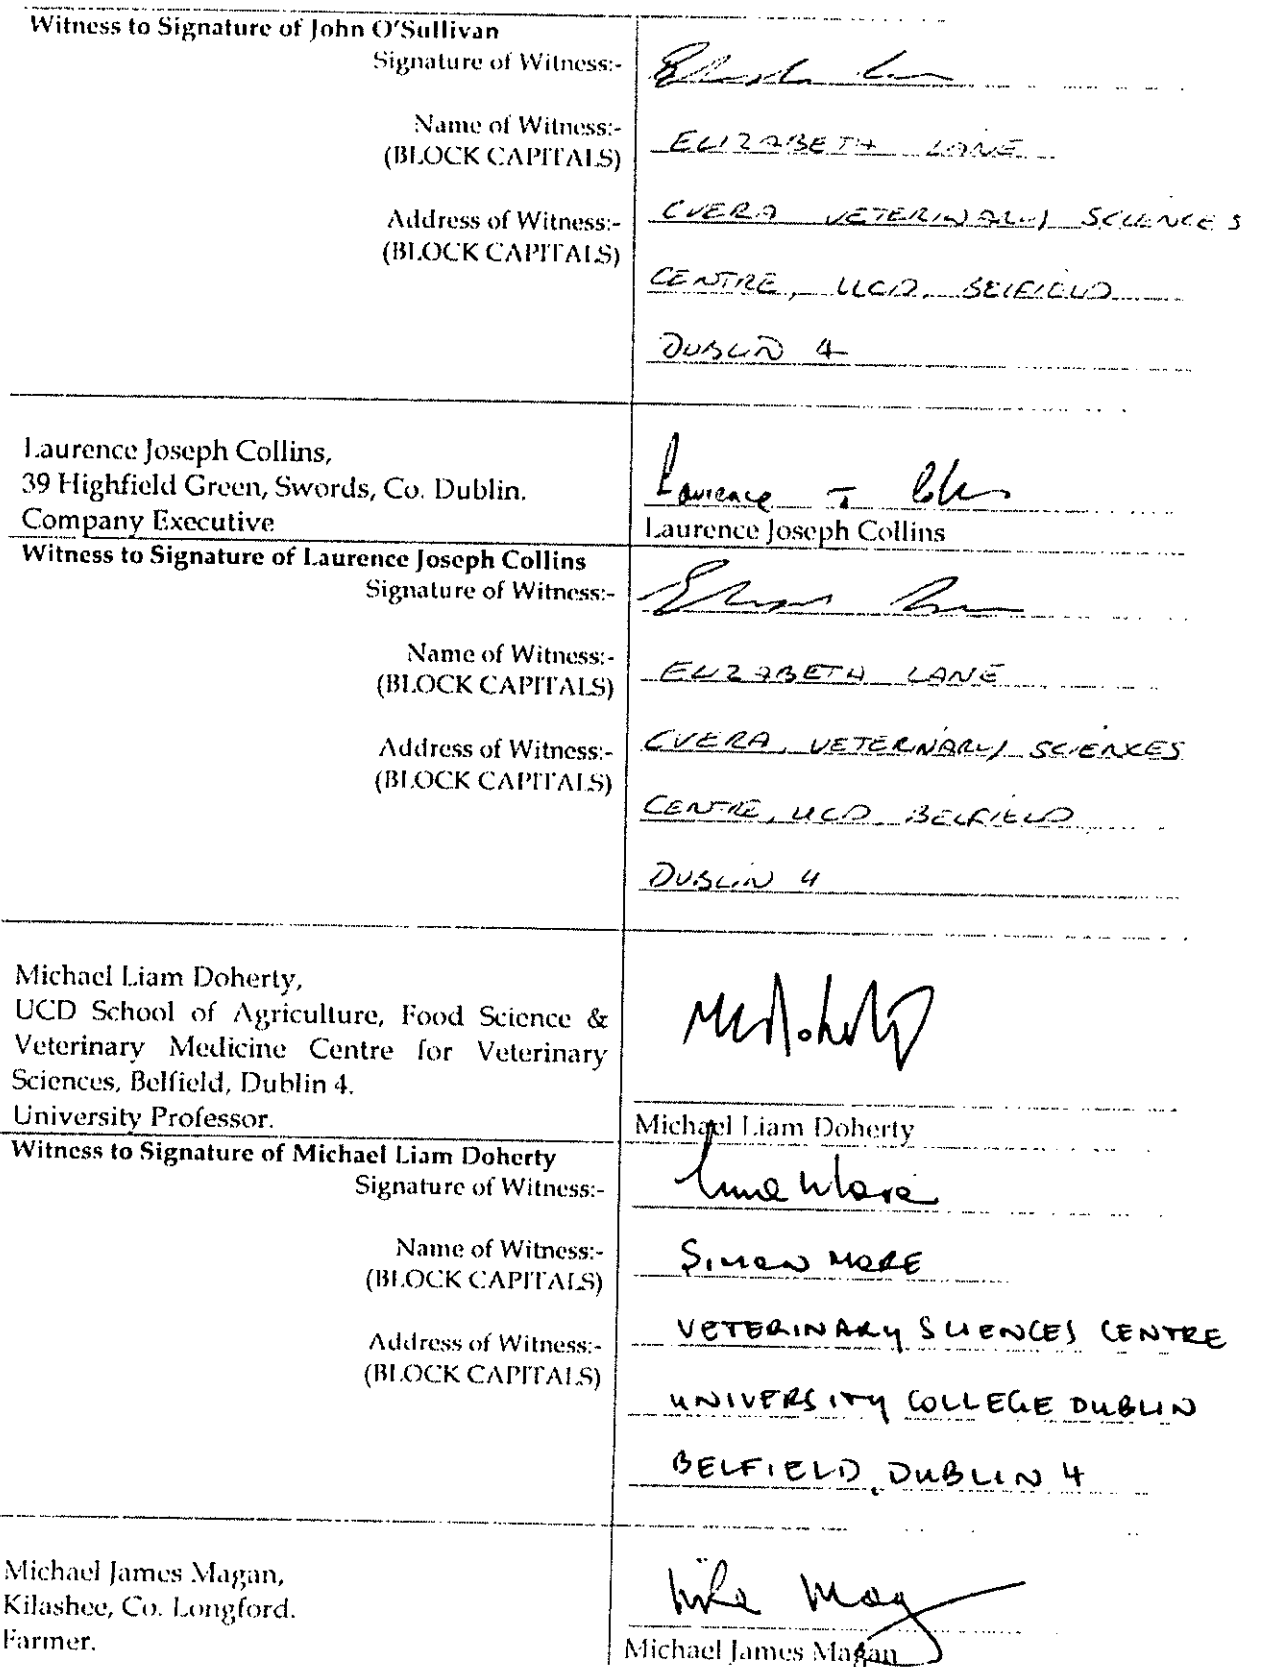 Witness to Signature of John O'Sullivan
Signature of Witness:-
Name of Witness:-
(BLOCK CAPITALS)
ELIZABETH LANE
Address of Witness:-
(BLOCK CAPITALS)
CVERA VETERINARY SCIENCES
CENTRE, UCD, BELFIELD
DUBLIN 4
Laurence Joseph Collins,
39 Highfield Green, Swords, Co. Dublin.
Company Executive
Laurence J
Laurence Joseph Collins
Witness to Signature of Laurence Joseph Collins
Signature of Witness:-
Name of Witness:-
(BLOCK CAPITALS)
ELIZABETH LANE
Address of Witness:-
(BLOCK CAPITALS)
CVERA, VETERINARY SCIENCES
CENTRE, UCD, BELFIELD
DUBLIN 4
Michael Liam Doherty,
UCD School of Agriculture, Food Science &
Veterinary Medicine Centre for Veterinary
Sciences, Belfield, Dublin 4.
University Professor.
Michael Liam Doherty
Witness to Signature of Michael Liam Doherty
Signature of Witness:-
Name of Witness:-
(BLOCK CAPITALS)
SIMON MORE
Address of Witness:-
(BLOCK CAPITALS)
VETERINARY SCIENCES CENTRE
UNIVERSITY COLLEGE DUBLIN
BELFIELD, DUBLIN 4
Michael James Magan,
Kilashee, Co. Longford.
Farmer.
Mike Mag
Michael James Magan